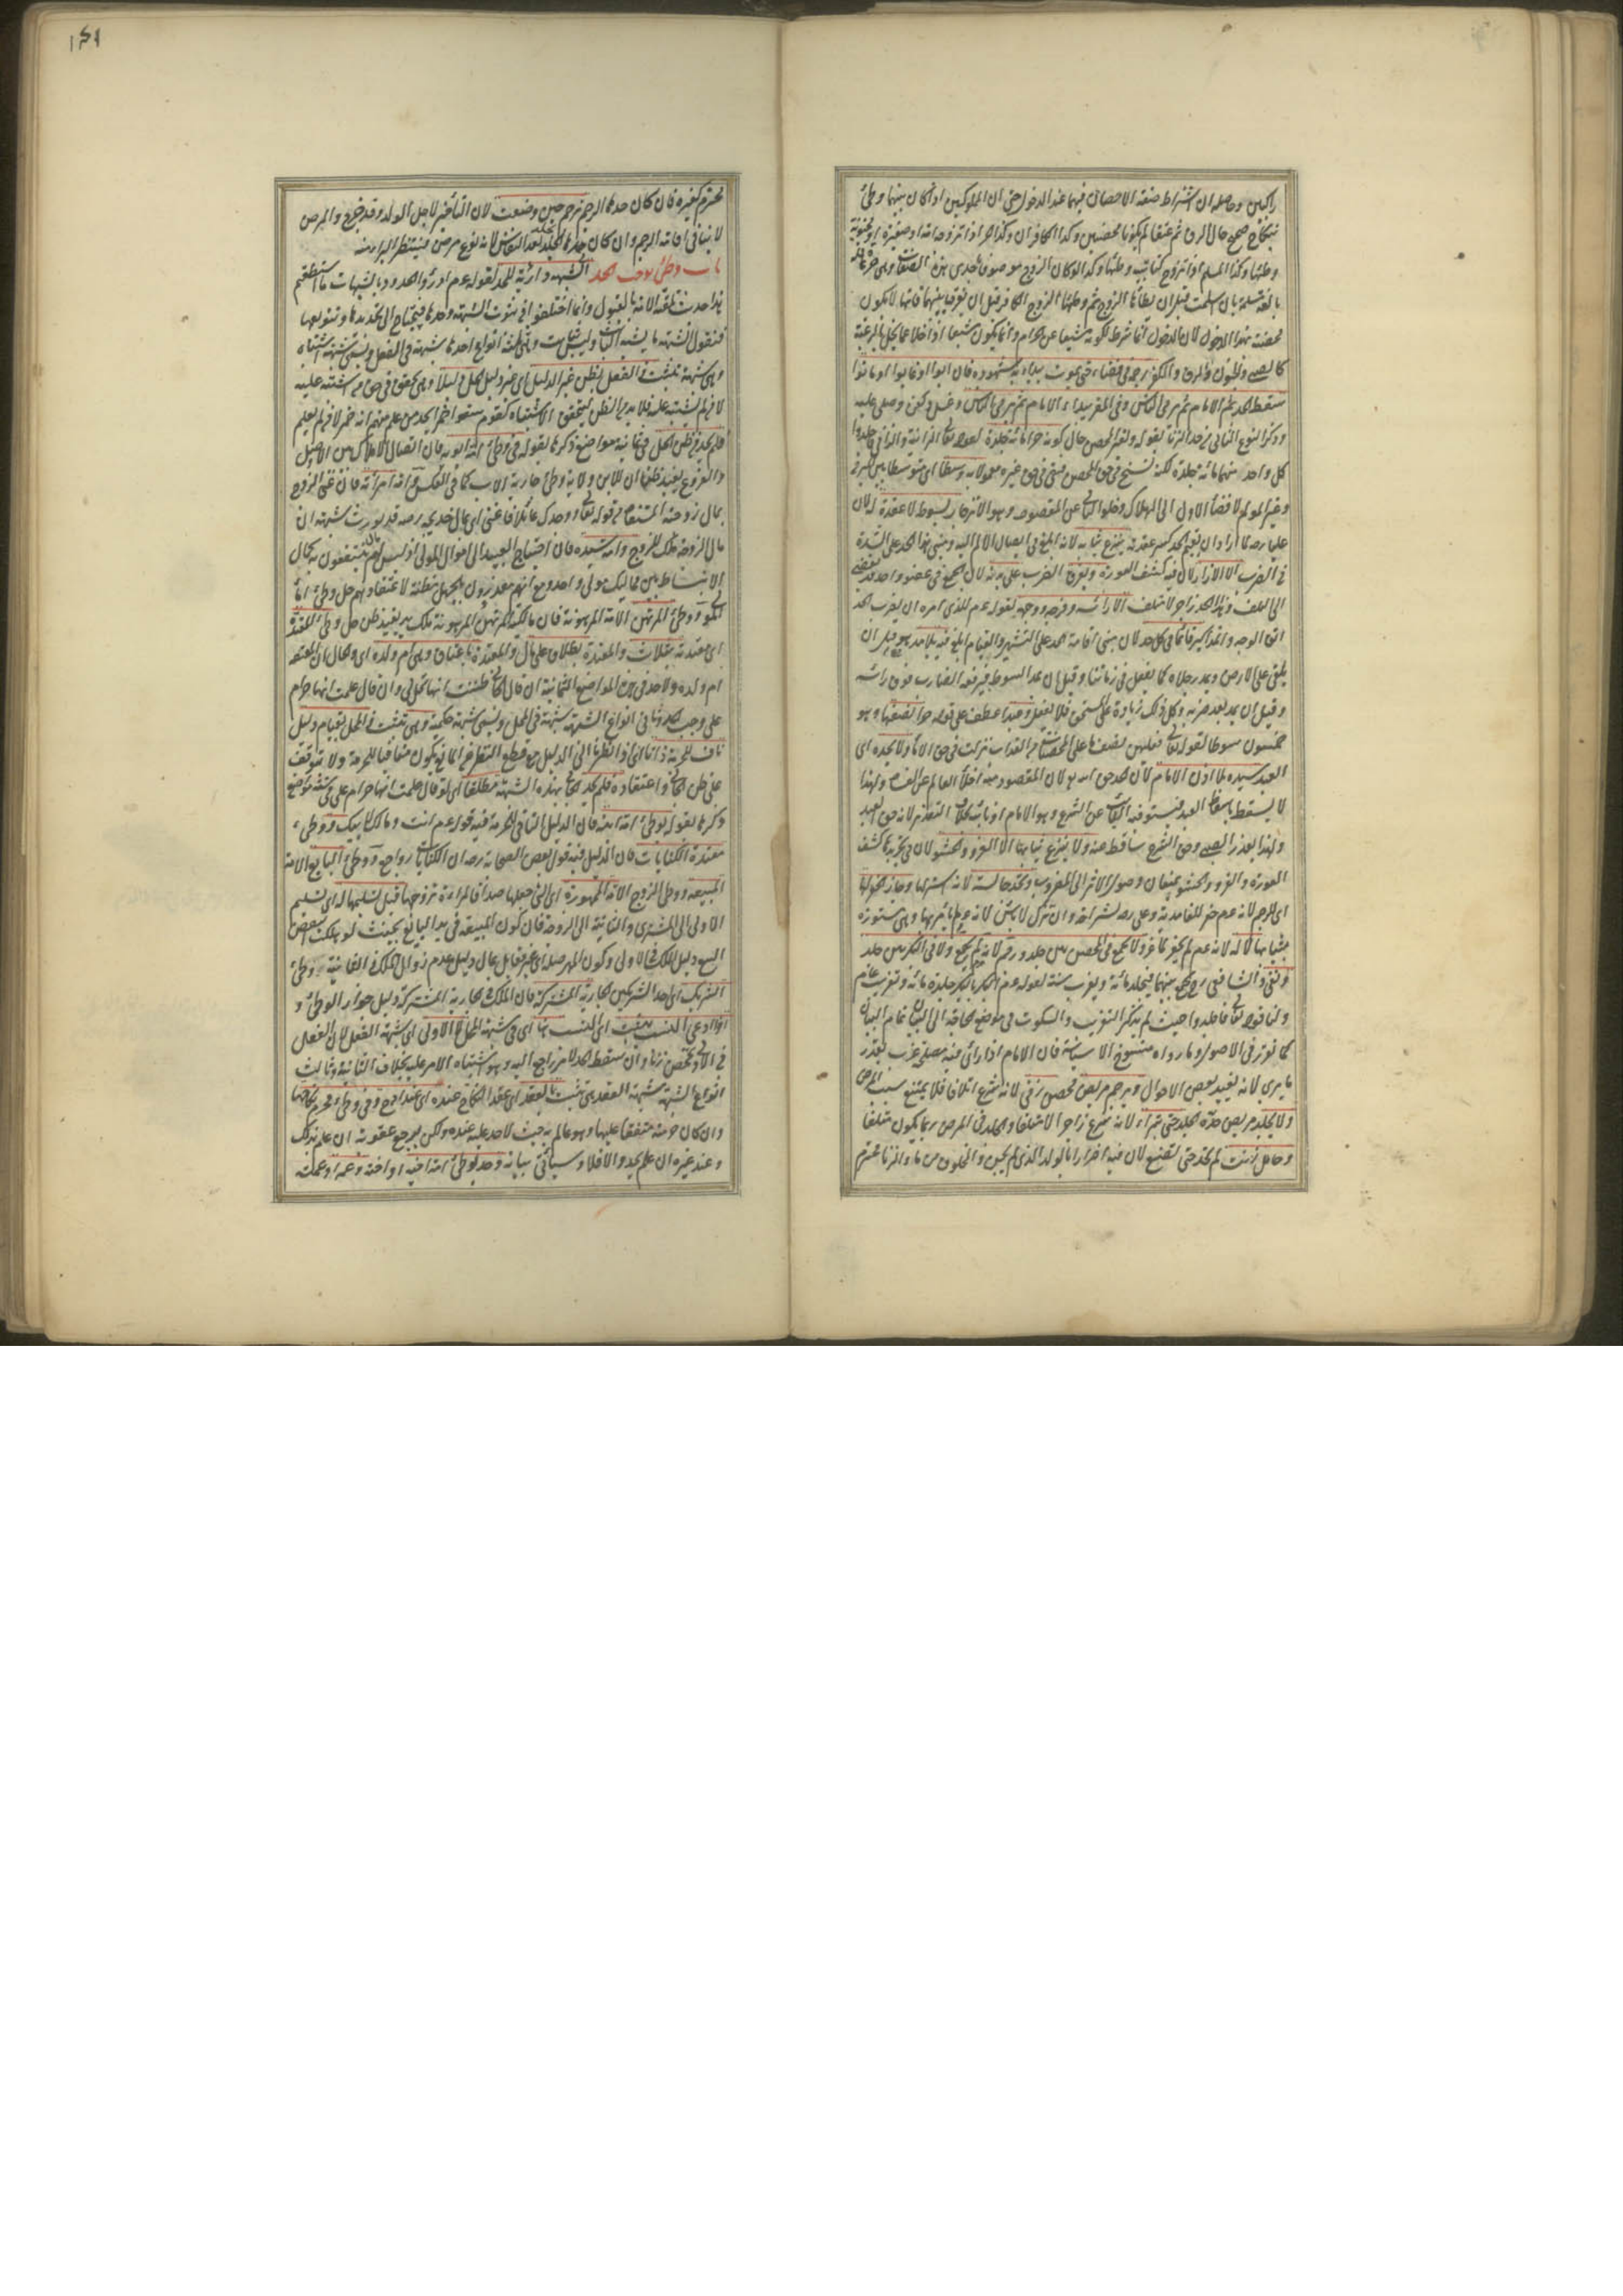 راكبين وحاصله ان اشتراط صفة الاحصان فيهما عند الدخول حتى ان المملوكين اذا كان بينهما وطئ
بنكاح صحيح حال الرق ثم عتقا لم يكونا محصنين وكذا الكافران وكذا الحر اذا تزوج امة او صغيرة او مجنونة
وطئها وكذا المسلم اذا تزوج كتابية وطئها وكذا لو كان الزوج موصوفا باحدى هذه الصفات وهى حرة عاقلة
بالغة مسلمة بان اسلمت قبل ان يطأها الزوج ثم وطئها الزوج الكافر قبل ان يفرق بينهما فانها لا تكون
محصنة بهذا الدخول لان الدخول انما شرط لكونه مشبعا عن الحرام وانما يكون مشبعا اذا خلا عما يخل بالرغبة
كالصبى والجنون والرق والكفر رجمه فى فضاء حتى يموت يبدأ به شهوده فان ابوا او غابوا او ماتوا
سقط الحد ثم الامام ثم الناس وفى المقر يبدأ الامام ثم الناس وغسل وكفن وصلى عليه
وذكر النوع الثانى من حد الزنا بقوله ولغير المحصن حال كونه حرا مائة جلدة لقوله تعالى الزانية والزانى فاجلدوا
كل واحد منهما مائة جلدة لكنه نسخ فى حق المحصن فبقى فى حق غيره معمولا به وسطا اى متوسطا بين المبرح
وغير المولم لافضاء الاول الى الهلاك وخلو الثانى عن المقصود وهو الانزجار بسوط لا عقدة له لان
عليا رضه لما اراد ان يقيم الحد كسر عقدته ينزع ثيابه لانه ابلغ فى ايصال الالم اليه ومبنى هذا الحد على الشدة
فى الضرب الا الازار لان فيه كشف العورة ويفرق الضرب على بدنه لان الجمع فى عضو واحد قد يفضى
الى التلف وهذا الحد زاجر لا متلف الا رأسه وفرجه ووجهه لقوله عم للذى امره ان يضرب الحد
اتق الوجه والمذاكير قائما فى كل حد لان مبنى اقامة الحد على التشهير والقيام ابلغ فيه بلا مد قيل ان
يلقى على الارض ويمد رجلاه كما يفعل فى زماننا وقيل ان يمد السوط فيرفعه الضارب فوق رأسه
وقيل ان يمد بعد ضربه وكل ذلك زيادة على المستحق فلا يفعل وعبدا عطف على قوله حرا نصفها وهو
خمسون سوطا لقوله تعالى فعليهن نصف ما على المحصنات من العذاب نزلت فى حق الاماء ولا يحده اى
العبد سيده بلا اذن الامام لان الحد حق الله تع لان المقصود منه اخلاء العالم عن الفساد ولهذا
لا يسقط باسقاط العبد فيستوفيه النائب عن الشرع وهو الامام او نائبه بخلاف التعزير لانه حق العبد
ولهذا يعزر الصبى وحق الشرع ساقط عنه ولا ينزع ثيابها الا الفرو والحشو لان فى تجريدها كشف
العورة والفرو والحشو يمنعان وصول الالم الى المضروب وتحد جالسة لانه استر لها وجاز الحفر لها
اى للرجم لانه عم حفر للغامدية وعلى رضه لشراحة وان ترك لا بأس لانه عم لم يأمر بها وهى مستورة
بثيابها لا له لانه عم لم يحفر لماعز ولا جمع فى المحصن بين جلد ورجم لانه عم لم يجمع ولا فى البكر بين جلد
ونفى والشافعى رح يجمع بينهما فيجلد مائة ويغرب سنة لقوله عم البكر بالبكر جلدة مائة وتغريب عام
ولنا قوله تعالى فاجلدوا حيث لم يذكر التغريب والسكوت فى موضع الحاجة الى البيان تمام البيان
كما تقرر فى الاصول وما رواه منسوخ الا سياسة فان الامام اذا رأى فيه مصلحة غرب بقدر
ما يرى لانه يفيد بعض الاحوال ويرجم مريض محصن زنى لانه شرع اتلافا فلا يمتنع بسبب المرض
ولا يجلد مريض حده الجلد حتى يبرأ لانه شرع زاجرا لا متلفا والجلد فى المرض ربما يكون متلفا
وحامل زنت لم تحد حتى تضع لان فيه اضرارا بالولد الذى لم يجن والمخلوق من ماء الزنا محترم
محترم كغيره فان كان حدها الرجم ترجم حين وضعت لان التأخير لاجل الولد وقد خرج والمرض
لا ينافى اقامة الرجم وان كان حدها الجلد تجلد بعد النفاس لانه نوع مرض فينتظر البرء منه
باب وطئ يوجب الحد الشبهة دارئة للحد لقوله عم ادرؤا الحدود بالشبهات ما استطعتم
هذا حديث تلقته الامة بالقبول وانما اختلفوا فى ثبوت الشبهة وحدها فيحتاج الى تحديدها وتنويعها
فنقول الشبهة ما يشبه الثابت وليس بثابت وهى ثلثة انواع احدها شبهة فى الفعل وتسمى شبهة اشتباه
وهى شبهة تثبت فى الفعل بظن غير الدليل اى غير دليل الحل دليلا وهى تتحقق فى حق من اشتبه عليه
لا من لم يشتبه عليه فلا بد من الظن ليتحقق الاشتباه كقوم سقوا خمرا يحد من علم منهم انه خمر لا من لم يعلم
فلم يحد من ظن الحل فى ثمانية مواضع ذكرها بقوله فى وطئ امة ابويه فان اتصال الاملاك بين الاصول
والفروع يفيد ظنا ان للابن ولاية وطئ جارية الاب كما فى العكس وامة امرأته فان غنى الزوج
بمال زوجته المستفاد من قوله تعالى ووجدك عائلا فاغنى اى بمال خديجة رضه قد يورث شبهة ان
مال الزوجة ملك للزوج وامة سيده فان احتياج العبيد الى اموال المولى اذ ليس لهم مال ينتفعون به بحال
الانبساط بين مماليك مولى واحد مع انهم معذورون بالجهل مظنة لاعتقادهم حل وطئ اماء
المولى ووطئ المرتهن الامة المرهونة فان مالكية المرتهن المرهونة ملك يد يفيد ظن حل وطئ المعتدة
اى معتدته بثلاث والمعتدة بطلاق على مال والمعتدة باعتاق وهى ام ولده اى والحال ان المعتقة
ام ولده ولا حد فى هذه المواضع الثمانية ان قال الجانى ظننت انها تحل لى وان قال علمت انها حرام
على وجب الحد وثانى انواع الشبهة شبهة فى المحل وتسمى شبهة حكمية وهى تثبت فى المحل بقيام دليل
ناف للحرمة ذاتا اى اذا نظرنا الى الدليل مع قطع النظر عن المانع يكون منافيا للحرمة ولا يتوقف
على ظن الجانى واعتقاده فلم يحد الجانى بهذه الشبهة مطلقا اى لو قال علمت انها حرام على فى ستة مواضع
ذكرها بقوله بوطئ امة ابنه فان الدليل النافى للحرمة فيه قوله عم انت ومالك لابيك ووطئ
معتدة الكنايات فان الدليل فيه قول بعض الصحابة رضه ان الكنايات رواجع ووطئ البايع الامة
المبيعة ووطئ الزوج الامة الممهورة اى التى جعلها صداقا لامرأة تزوجها قبل تسليمها له اى تسليم
الاولى الى المشترى والثانية الى الزوجة فان كون المبيعة فى يد البايع بحيث لو هلكت انتقض
البيع دليل الملك فى الاولى وكون المهر صلة اى غير مقابل بمال دليل عدم زوال الملك فى الثانية ووطئ
الشريك اى احد الشريكين الجارية المشتركة فان الملك فى الجارية المشتركة دليل جواز الوطئ و
اذا ادعى النسب يثبت اى النسب هنا اى فى شبهة المحل لا الاولى اى شبهة الفعل لان الفعل
فى الاولى تمحض زنا وان سقط الحد لامر راجع اليه وهو اشتباه الامر عليه بخلاف الثانية وثالث
انواع الشبهة شبهة العقد تثبت بالعقد اى عقد النكاح عنده اى عند ابى ح رح وفى وطئ محرم نكحها
وان كان حرمته متفقا عليها وهو عالم به حيث لا حد عليه عنده ولكن يوجع عقوبة ان علم بذلك
وعند غيره ان علم يحد والا فلا وسيأتى بيانه وحد بوطئ امة اخيه او اخته وعمه او عمته
۱۴۱